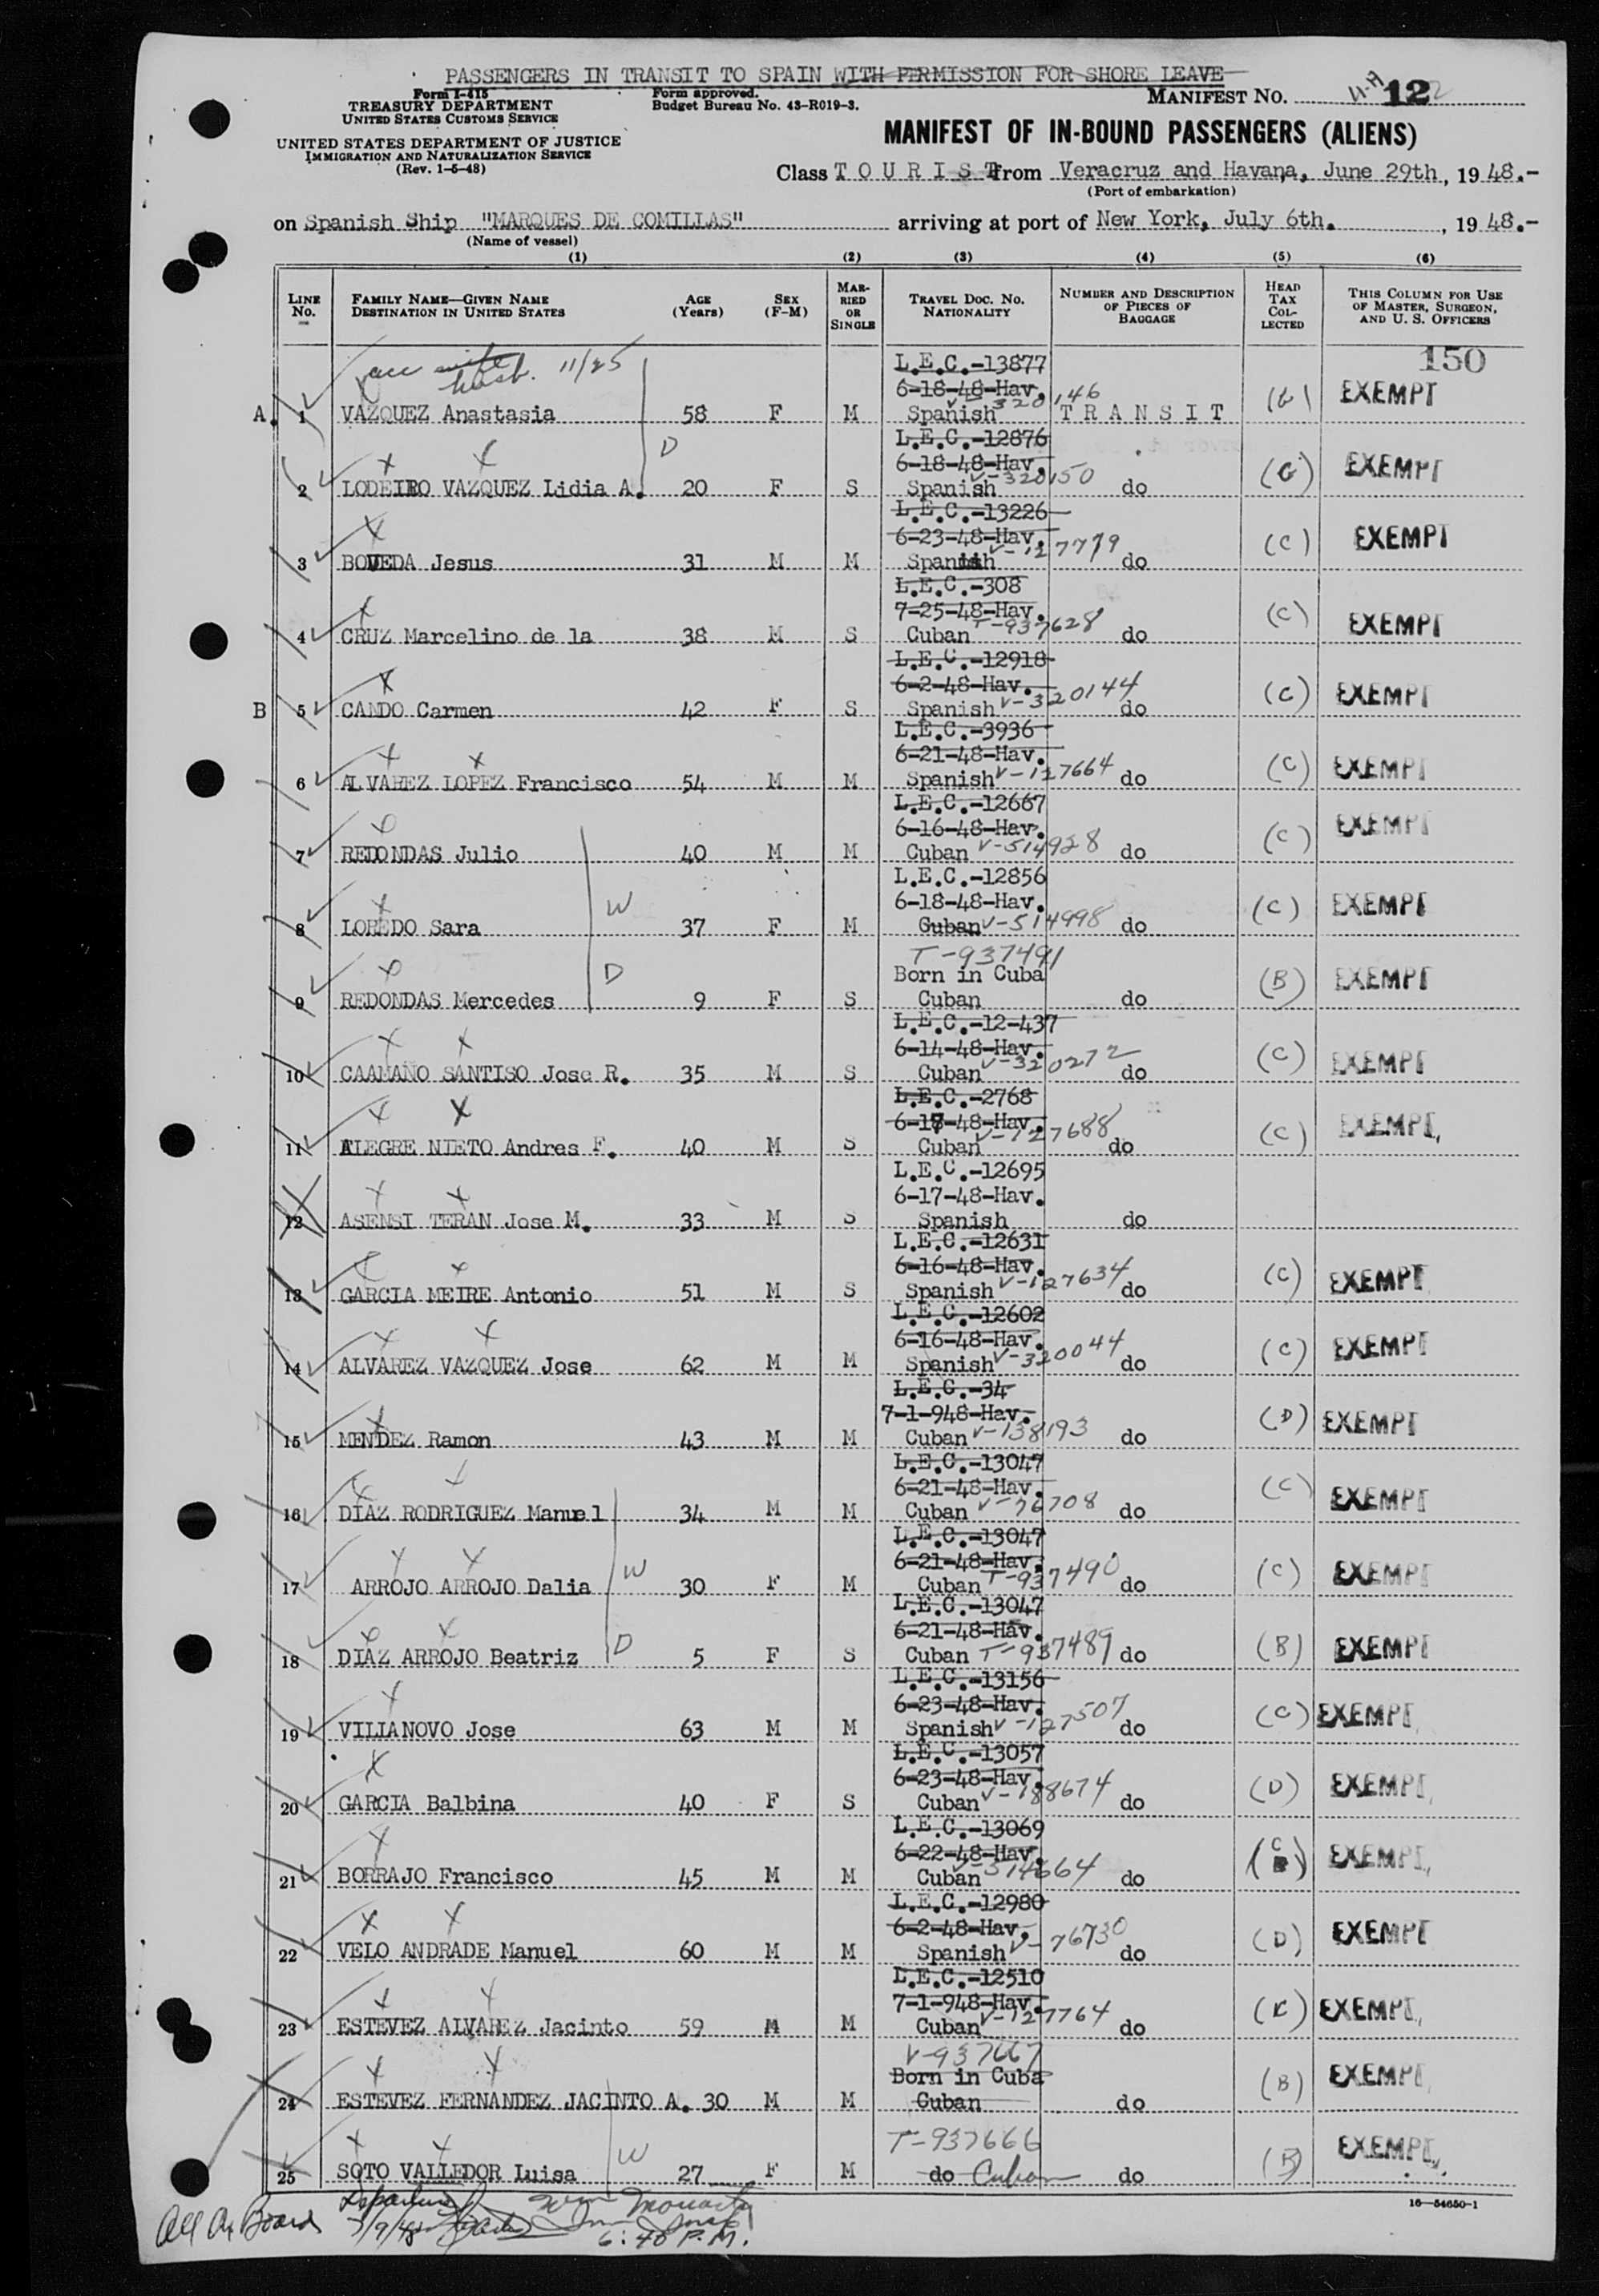 PASSENGERS IN TRANSIT TO SPAIN WITH PERMISSION FOR SHORE LEAVE
Form I-415
TREASURY DEPARTMENT
UNITED STATES CUSTOMS SERVICE
UNITED STATES DEPARTMENT OF JUSTICE
IMMIGRATION AND NATURALIZATION SERVICE
(Rev. 1-5-48)
Form approved.
Budget Bureau No. 43-R019-3.
MANIFEST NO. 12
MANIFEST OF IN-BOUND PASSENGERS (ALIENS)
Class T O U R I S T from Veracruz and Havana, June 29th, 19 48.-
(Port of embarkation)
on Spanish Ship "MARQUES DE COMILLAS" arriving at port of New York, July 6th. , 19 48.-
(Name of vessel)
(1) (2) (3) (4) (5) (6)
LINE No. FAMILY NAME—GIVEN NAME DESTINATION IN UNITED STATES AGE (Years) SEX (F-M) MARRIED OR SINGLE TRAVEL DOC. NO. NATIONALITY NUMBER AND DESCRIPTION OF PIECES OF BAGGAGE HEAD TAX COLLECTED THIS COLUMN FOR USE OF MASTER, SURGEON, AND U. S. OFFICERS
150
acc wife husb. 11/25
L.E.C.-13877
6-18-48-Hav. V-320146
A. 1 VAZQUEZ Anastasia 58 F M Spanish T R A N S I T EXEMPT
D
L.E.C.-12876
6-18-48-Hav. V-320150
2 LODEIRO VAZQUEZ Lidia A. 20 F S Spanish do (C) EXEMPT
L.E.C.-13226
6-23-48-Hav. V-127779
3 BOVEDA Jesus 31 M M Spanish do (C) EXEMPT
L.E.C.-308
7-25-48-Hav. T-937628
4 CRUZ Marcelino de la 38 M S Cuban do (C) EXEMPT
L.E.C.-12918
6-2-48-Hav.
B 5 CANDO Carmen 42 F S Spanish V-320144 do (C) EXEMPT
L.E.C.-3936
6-21-48-Hav.
6 ALVAREZ LOPEZ Francisco 54 M M Spanish V-127664 do (C) EXEMPT
L.E.C.-12667
6-16-48-Hav.
7 REDONDAS Julio 40 M M Cuban V-514928 do (C) EXEMPT
L.E.C.-12856
6-18-48-Hav.
8 LOREDO Sara W 37 F M Cuban V-514998 do (C) EXEMPT
T-937491
Born in Cuba
9 REDONDAS Mercedes D 9 F S Cuban do (B) EXEMPT
L.E.C.-12-437
6-14-48-Hav. V-320272
10 CAAMAÑO SANTISO Jose R. 35 M S Cuban do (C) EXEMPT
L.E.C.-2768
6-17-48-Hav. V-127688
11 ALEGRE NIETO Andres F. 40 M S Cuban do (C) EXEMPT
L.E.C.-12695
6-17-48-Hav.
12 ASENSI TERAN Jose M. 33 M S Spanish do
L.E.C.-12631
6-16-48-Hav.
13 GARCIA MEIRE Antonio 51 M S Spanish V-127634 do (C) EXEMPT
L.E.C.-12602
6-16-48-Hav.
14 ALVAREZ VAZQUEZ Jose 62 M M Spanish V-320044 do (C) EXEMPT
L.E.C.-34
7-1-948-Hav.
15 MENDEZ Ramon 43 M M Cuban V-138193 do (D) EXEMPT
L.E.C.-13047
6-21-48-Hav.
16 DIAZ RODRIGUEZ Manuel 34 M M Cuban V-76708 do (C) EXEMPT
L.E.C.-13047
6-21-48-Hav.
17 ARROJO ARROJO Dalia W 30 F M Cuban T-937490 do (C) EXEMPT
L.E.C.-13047
6-21-48-Hav.
18 DIAZ ARROJO Beatriz D 5 F S Cuban T-937489 do (B) EXEMPT
L.E.C.-13156
6-23-48-Hav.
19 VILLANOVO Jose 63 M M Spanish V-127507 do (C) EXEMPT
L.E.C.-13057
6-23-48-Hav.
20 GARCIA Balbina 40 F S Cuban V-188674 do (D) EXEMPT
L.E.C.-13069
6-22-48-Hav.
21 BORRAJO Francisco 45 M M Cuban V-514664 do (C) EXEMPT
L.E.C.-12980
6-2-48-Hav.
22 VELO ANDRADE Manuel 60 M M Spanish V-76730 do (D) EXEMPT
L.E.C.-12510
7-1-948-Hav.
23 ESTEVEZ ALVAREZ Jacinto 59 M M Cuban V-127764 do EXEMPT
V-937667
Born in Cuba
24 ESTEVEZ FERNANDEZ JACINTO A. 30 M M Cuban do (B) EXEMPT
T-937666
25 SOTO VALLEDOR Luisa W 27 F M do Cuban do (B) EXEMPT
16-54650-1
All On Board
7/9/48
6:40 P.M.